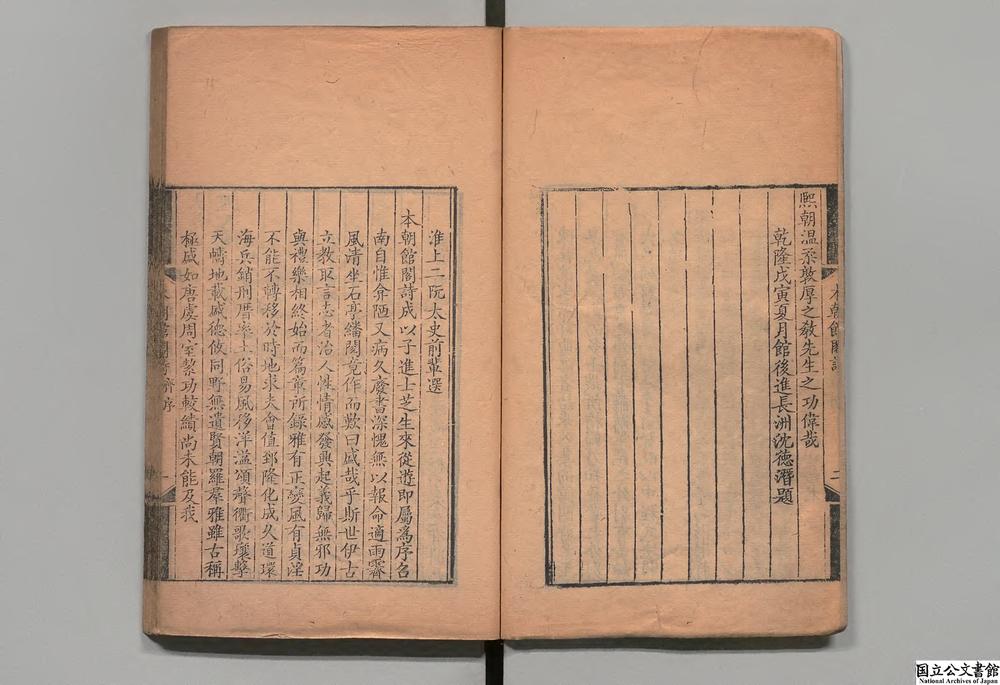 熙朝溫柔敦厚之教先生之功偉哉
乾隆戊寅夏月館後進長洲沈德潛題
本朝館閣詩
二
淮上二阮太史前輩選
本朝館閣詩成以子進士芝生來從遊即屬為序名
南自惟弇陋又病久廢書深愧無以報命適雨霽
風清坐石亭繙閱竟作而歎曰盛哉乎斯世伊古
立教取言志者治人性情感發興起義歸無邪功
與禮樂相終始而篇章所錄雅有正變風有貞淫
不能不轉移於時地求夫會值郅隆化成久道環
海兵銷刑厝率土俗易風移洋溢頌聲衢歌壤擊
天幬地載盛德攸同野無遺賢朝羅羣雅雖古稱
極盛如唐虞周室絜功較績尚未能及我
国立公文書館
National Archives of Japan